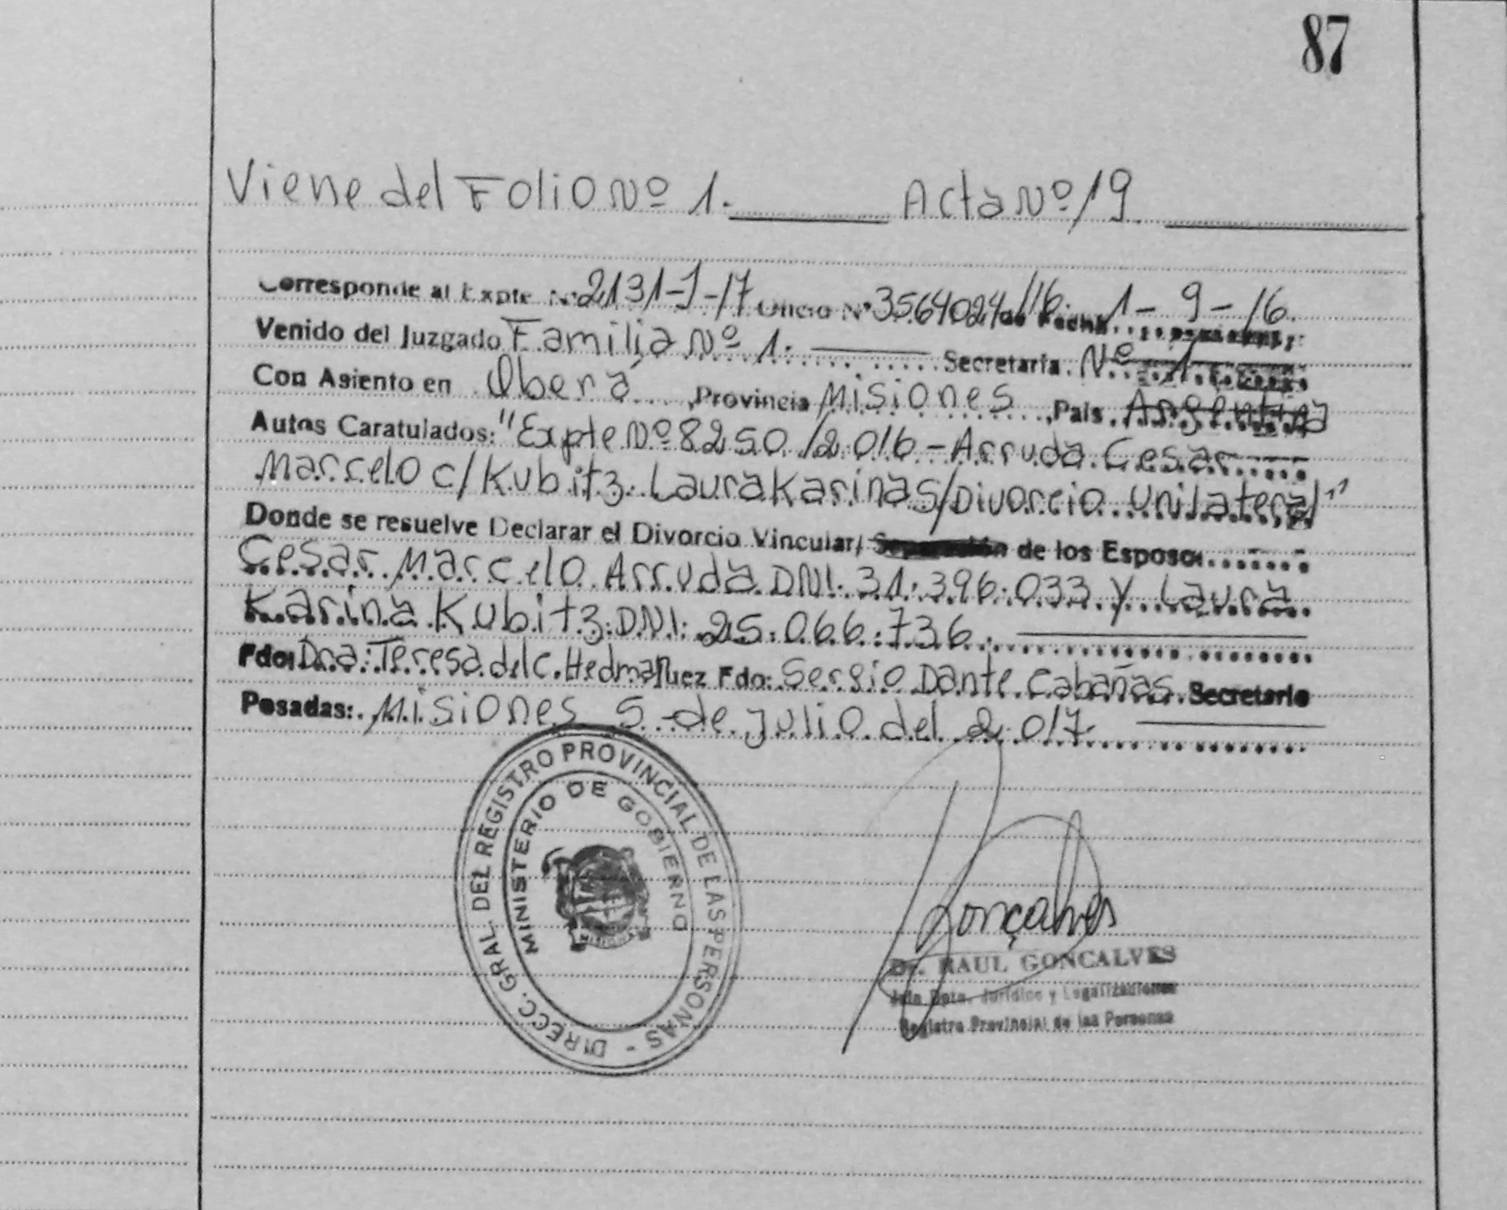 87
Viene del Folio Nº 1. Acta Nº 19
Corresponde al Expte Nº 2131-J-17 Oficio Nº 3564024/16 de Fecha 1-9-16.
Venido del Juzgado Familia Nº 1. Secretaria Nº 1
Con Asiento en Oberá, Provincia Misiones, Pais Argentina
Autos Caratulados: "Expte Nº 8250/2016-Arruda Cesar
Marcelo c/Kubitz Laura Karina S/Divorcio Unilateral"
Donde se resuelve Declarar el Divorcio Vincular/ Separación de los Esposos
Cesar Marcelo Arruda DNI. 31.396.033 y Laura
Karina Kubitz. DNI. 25.066.736.
Fdo: Dra. Teresa del C. Juez Fdo: Sergio Dante Cabañas Secretario
Posadas: Misiones 5 de julio del 2017
DIRECC. GRAL. DEL REGISTRO PROVINCIAL DE LAS PERSONAS -
MINISTERIO DE GOBIERNO
Gonçalves
Dr. RAUL GONCALVES
Jefe Dpto. Jurídico y Legalizaciones
Registro Provincial de las Personas